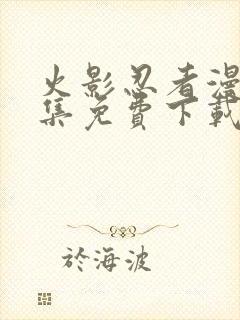 火影忍者漫
集免費下載
於海波